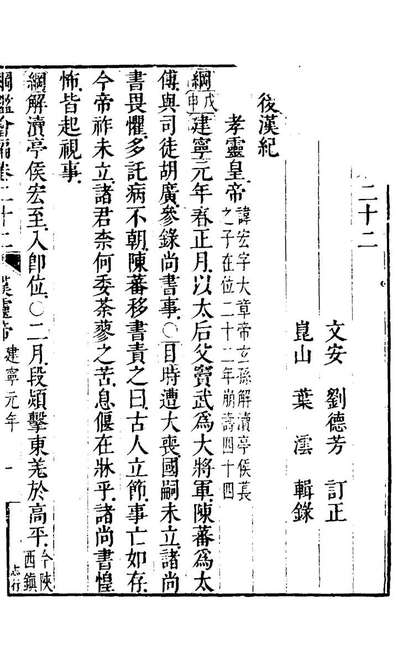 二十二
文安 劉德芳 訂正
崑山 葉澐 輯錄
後漢紀
孝靈皇帝
諱宏字大章帝玄孫解瀆亭侯萇
之子在位二十二年崩壽四十四
綱
戊申
建寧元年春正月以太后父竇武爲大將軍陳蕃爲太
傅與司徒胡廣參錄尚書事○目時遭大喪國嗣未立諸尚
書畏懼多託病不朝陳蕃移書責之曰古人立節事亡如存
今帝祚未立諸君柰何委荼蓼之苦息偃在牀乎諸尚書惶
怖皆起視事
綱解瀆亭侯宏至入卽位○二月段熲擊東羌於高平
今陝
西鎮
綱鑑會編卷二十二 漢靈帝 建寧元年 一